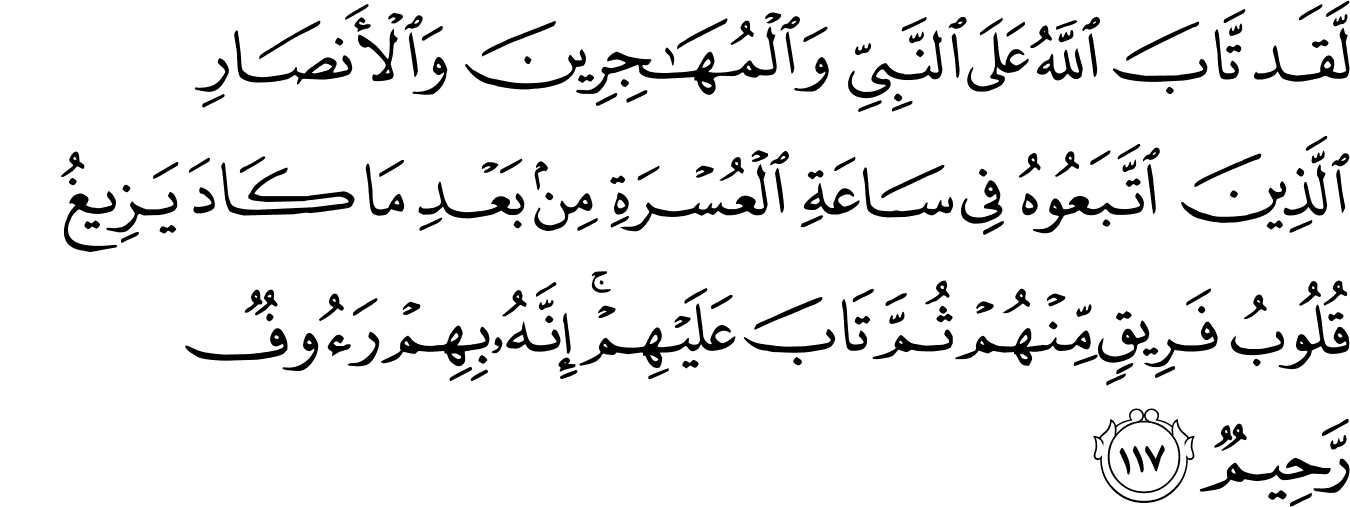 لَّقَد تَّابَ ٱللَّهُ عَلَى ٱلنَّبِىِّ وَٱلْمُهَـٰجِرِينَ وَٱلْأَنصَارِ
ٱلَّذِينَ ٱتَّبَعُوهُ فِى سَاعَةِ ٱلْعُسْرَةِ مِنۢ بَعْدِ مَا كَادَ يَزِيغُ
قُلُوبُ فَرِيقٍ مِّنْهُمْ ثُمَّ تَابَ عَلَيْهِمْ ۚ إِنَّهُۥ بِهِمْ رَءُوفٌ
رَّحِيمٌ ١١٧